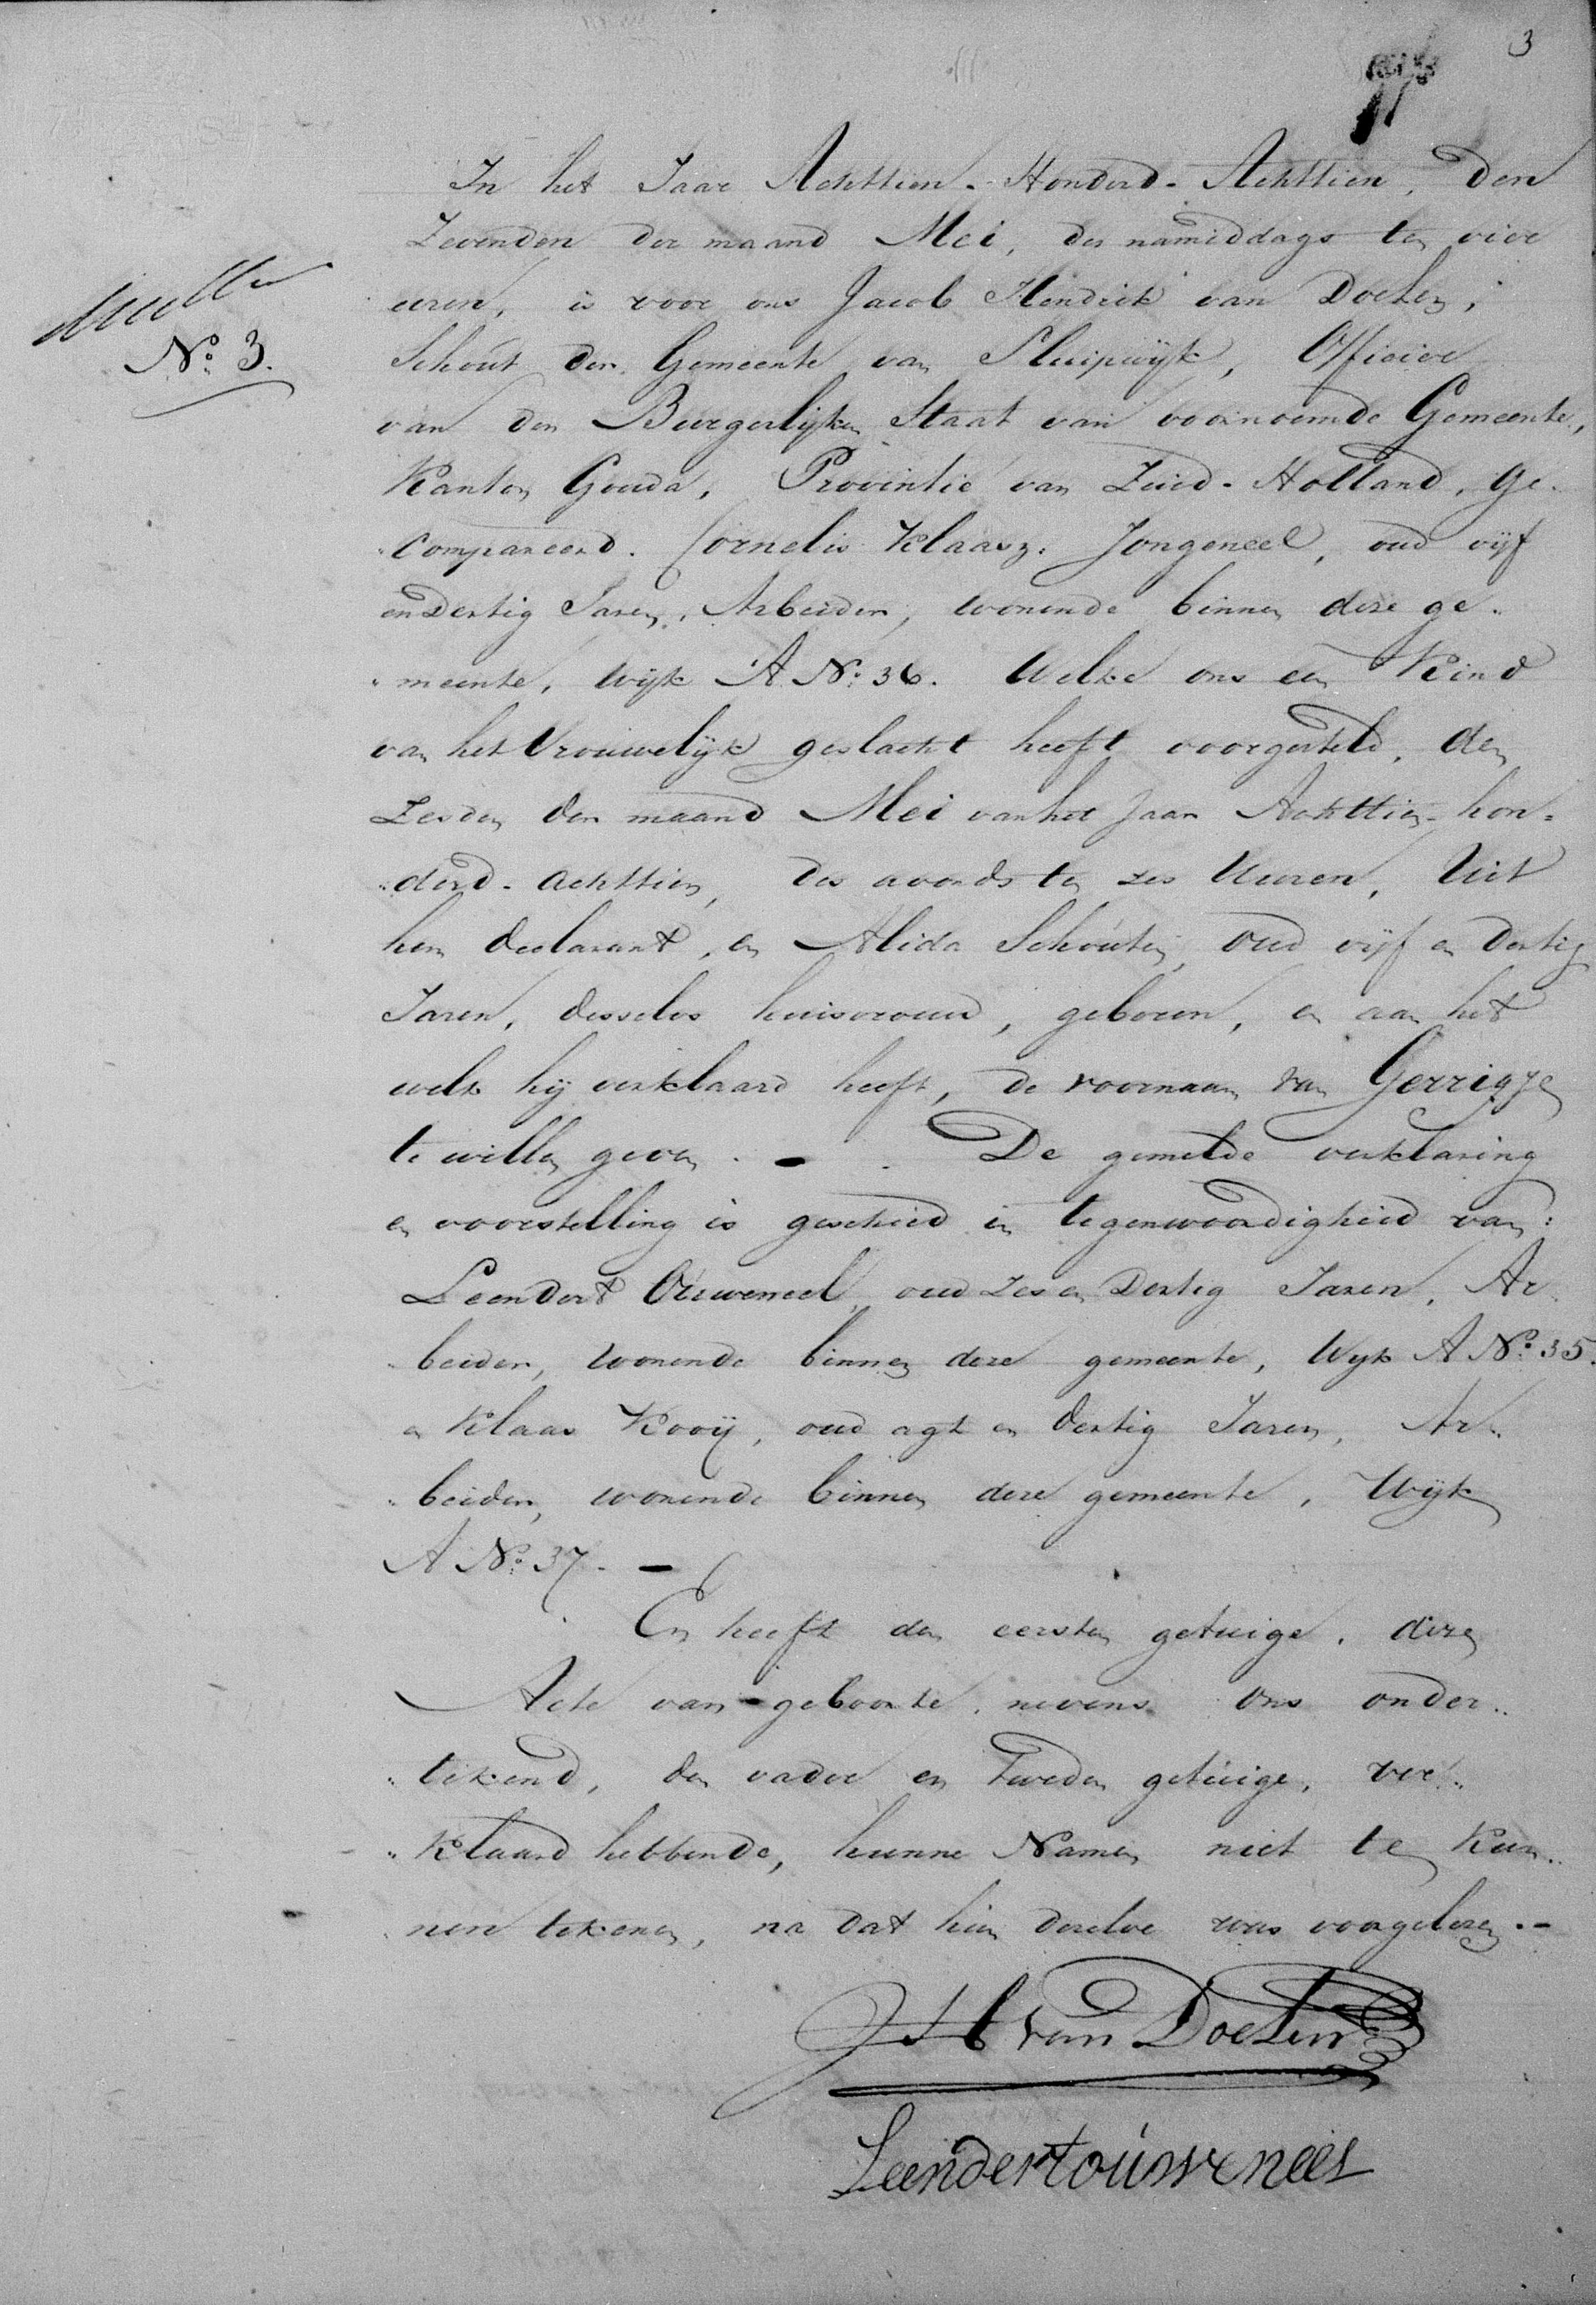 3
In het Jaar Achttien-Honderd-Achttien, den
Zevenden der maand Mei, des namiddags ten vier
uren, is voor ons Jacob Hendrik van Doelen,
Schout der Gemeente van Sluipwijk, Officier
van den Burgerlijken Staat van voornoemde Gemeente,
Kanton Gouda, Provintie van Zuid-Holland, ge-
compareerd. Cornelis Klaasz. Jongeneel, oud vijf
en Dertig Jaren, Arbeider, wonende binnen deze ge-
meente, wijk A No. 36. Welke ons een Kind
van het Vrouwelijk geslacht heeft voorgesteld, den
Zesden der maand Mei van het Jaar Achttien-hon-
derd-achttien, des avonds ten zes Uuren, Uit
hem declarant, en Alida Schouten, oud vijf en dertig
Jaren, desselvs huisvrouw, geboren, en aan het
welk hij verklaard heeft, de voornaam van Gerrigje
te willen geven. - De gemelde verklaring
en voorstelling is geschied in tegenwoordigheid van:
Leendert Ouweneel, oud zes en Dertig Jaren, Ar-
beider, wonende binnen deze gemeente, Wijk A No. 35.
en Klaas Kooij, oud agt en dertig Jaren, Ar-
beider, wonende binnen deze gemeente, Wijk
A No. 37. -
En heeft den eersten getuige, deze
Acte van geboorte, nevens ons onder-
tekend, den vader en tweeden getuige, ver-
klaard hebbende, hunne Namen niet te kun-
nen tekenen, na dat hun dezelve was voorgelezen. -
No. 3.
JH van Doelen
Leendert ouweneel